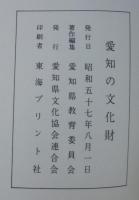 愛知の文化財
発行日 昭和五十七年八月一日
著作編集 愛知県教育委員会
発行 愛知県文化協会連合会
印刷者 東海プリント社